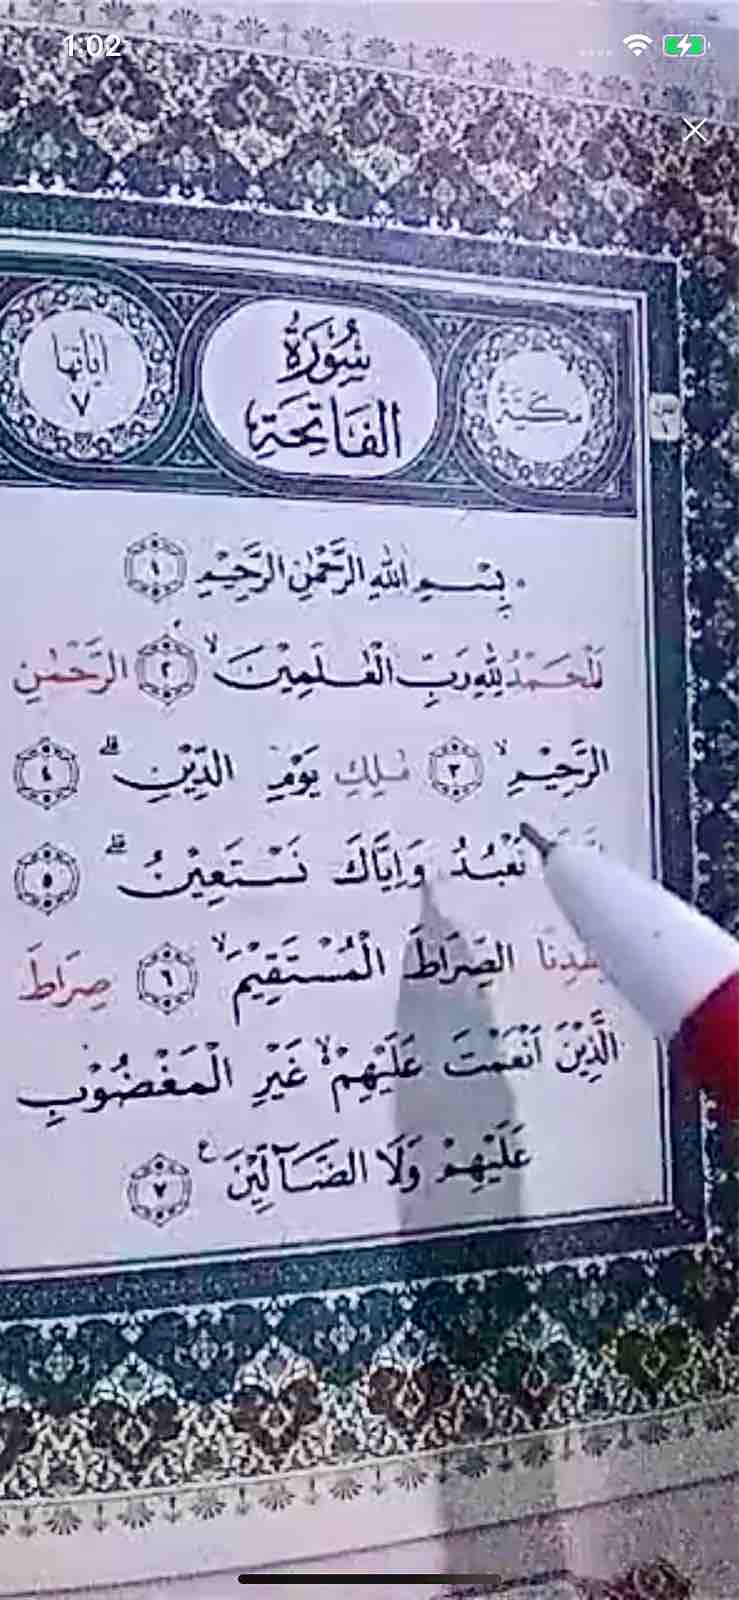 1:02
مَكِّيَّةٌ
سُوْرَةُ
الفَاتِحَةِ
اٰيَاتُهَا
٧
بِسْــمِ اللهِ الرَّحْمٰنِ الرَّحِيْمِ ١
اَلْحَمْدُ لِلّٰهِ رَبِّ الْعٰلَمِيْنَ ۙ ٢ الرَّحْمٰنِ
الرَّحِيْمِ ۙ ٣ مٰلِكِ يَوْمِ الدِّيْنِ ۗ ٤
نَعْبُدُ وَاِيَّاكَ نَسْتَعِيْنُ ۗ ٥
الصِّرَاطَ الْمُسْتَقِيْمَ ۙ ٦ صِرَاطَ
الَّذِيْنَ اَنْعَمْتَ عَلَيْهِمْ ۙ غَيْرِ الْمَغْضُوْبِ
عَلَيْهِمْ وَلَا الضَّاۤلِّيْنَ ࣖ ٧